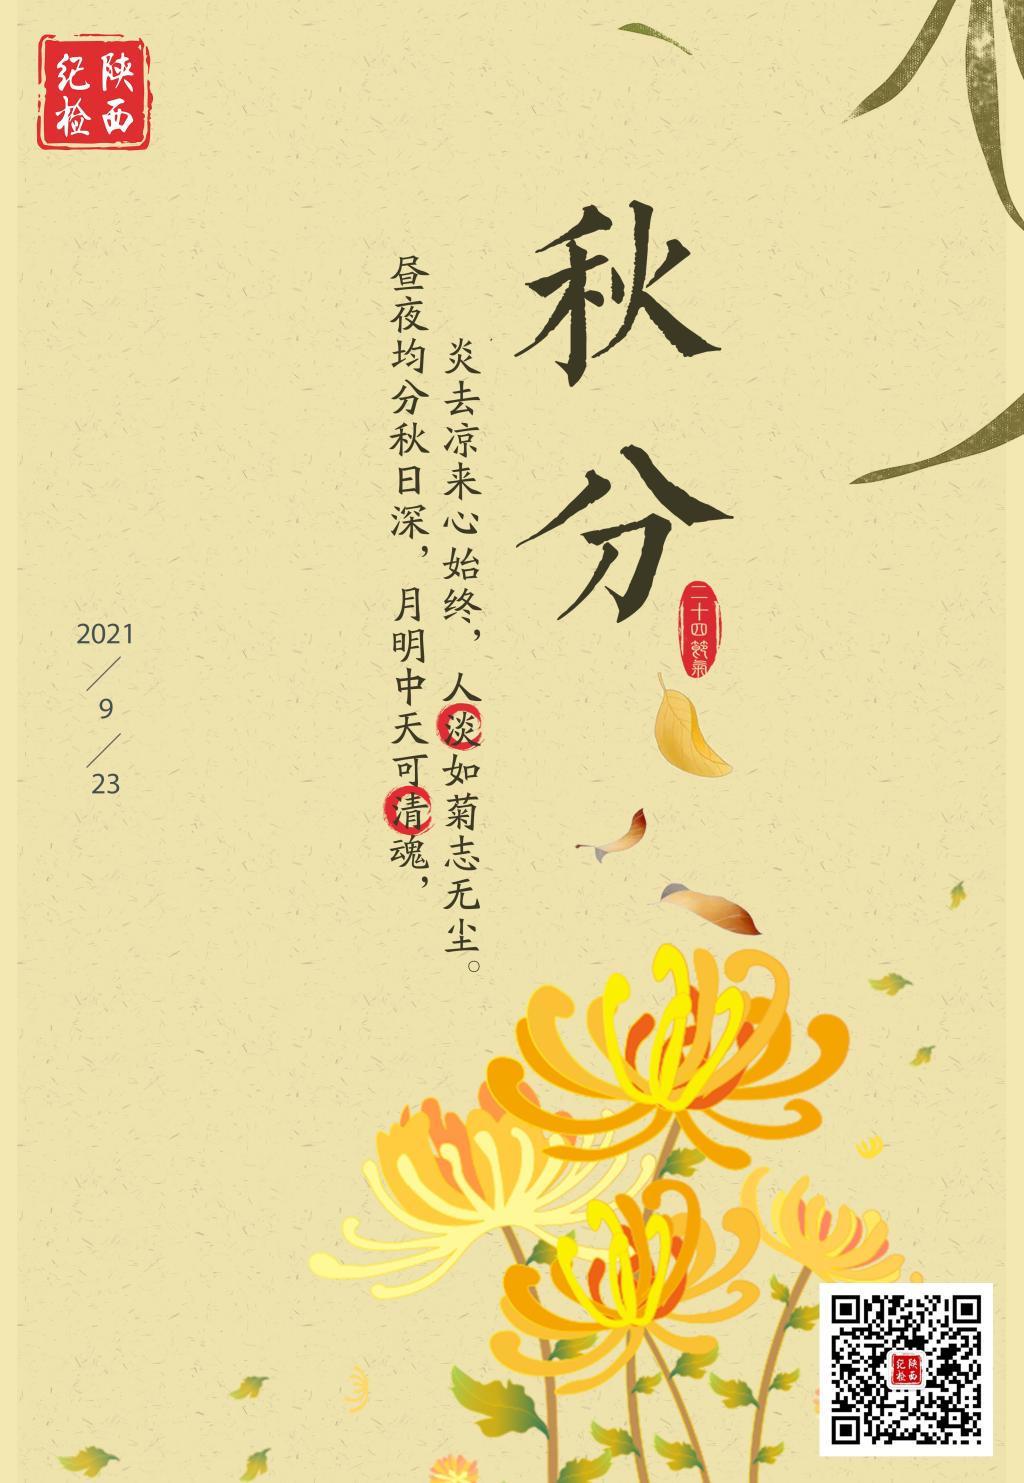 陕西
纪检
秋分
二十四節氣
昼夜均分秋日深，月明中天可清魂，
炎去凉来心始终，人淡如菊志无尘。
2021
9
23
陕西
纪检